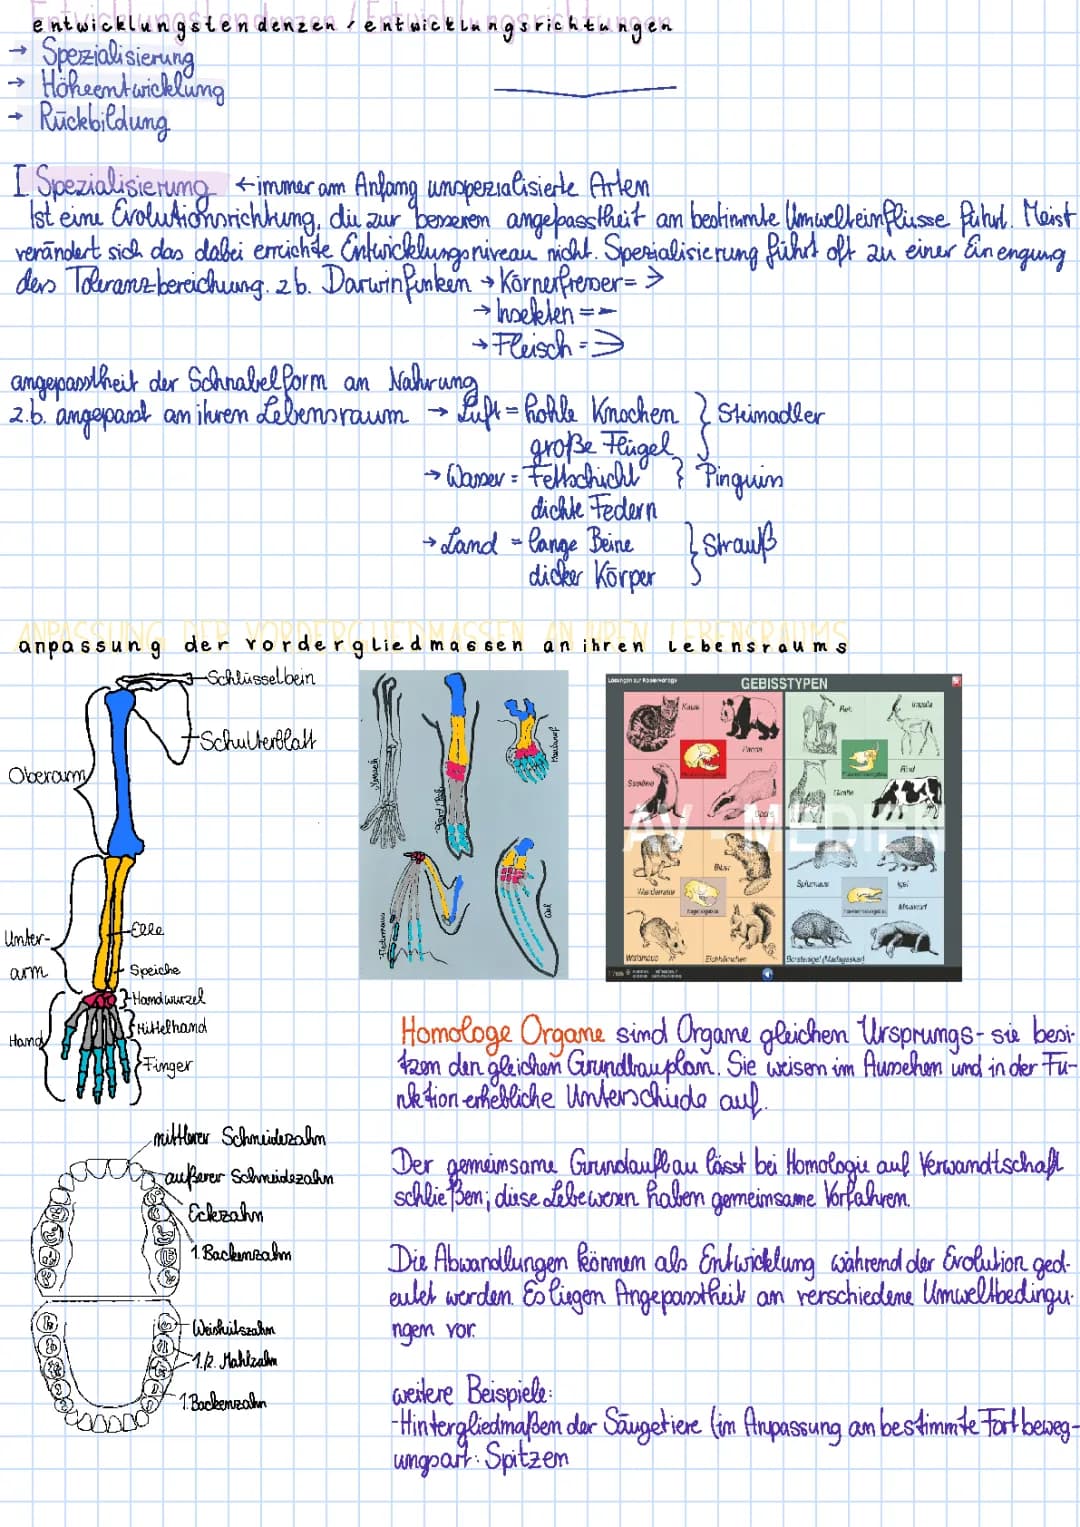 entwicklungstendenzen / entwicklungsrichtungen
→ Spezialisierung
→ Höheentwicklung
→ Rückbildung
I Spezialisierung ← immer am Anfang unspezialisierte Arten
Ist eine Evolutionsrichtung, die zur besseren angepasstheit am bestimmte Umwelteinflüsse führt. Meist
verändert sich das dabei erreichte Entwicklungsniveau nicht. Spezialisierung führt oft zu einer Einengung
ders Toleranzbereichung. z b. Darwinfinken → Körnerfresser =
→ Insekten =
→ Fleisch =
angepasstheit der Schnabelform an Nahrung
z.b. angepasst an ihrem Lebensraum → Luft = hohle Knochen } Steinadler
große Flügel
→ Wasser = Fettschicht } Pinguin
dichte Federn
→ Land = lange Beine } Strauß
dicker Körper
anpassung der vordergliedmassen an ihren Lebensraums
Schlüsselbein
Schulterblatt
Oberarm
Unter-
arm
Elle
Speiche
Handwurzel
Mittelhand
Hand
Finger
Mensch
Pferd
Maulwurf
Fledermaus
Wal
Lösungen zur Kopiervorlage
GEBISSTYPEN
Katze
Panda
Reh
Impala
Giraffe
Rind
AV - MEDIEN
Wanderratte
Biber
Spitzmaus
Igel
Maulwurf
Waldmaus
Eichhörnchen
Borstenigel (Madagaskar)
Homologe Organe sind Organe gleichen Ursprungs - sie besi-
tzen den gleichen Grundbauplan. Sie weisen im Aussehen und in der Fu-
nktion erhebliche Unterschiede auf.
Der gemeinsame Grundaufbau lässt bei Homologie auf Verwandtschaft
schließen; diese Lebewesen haben gemeinsame Vorfahren.
Die Abwandlungen können als Entwicklung während der Evolution ged-
eutet werden. Es liegen Angepasstheit an verschiedene Umweltbedingu-
ngen vor.
weitere Beispiele:
-Hintergliedmaßen der Säugetiere (im Anpassung an bestimmte Fortbeweg-
ungsart: Spitzen
mittlerer Schneidezahn
äußerer Schneidezahn
Eckzahn
1. Backenzahn
Weisheitszahn
1./2. Mahlzahn
1. Backenzahn